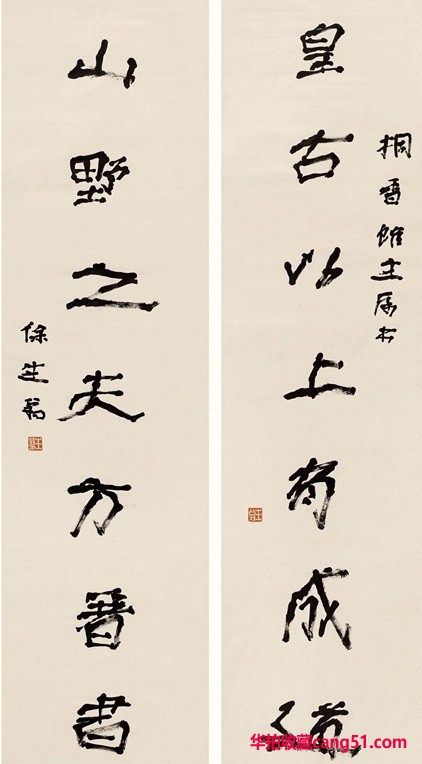 桐香館主属书
皇古以上有成道
山野之夫方著書
徐生翁
华拍收藏cang51.com